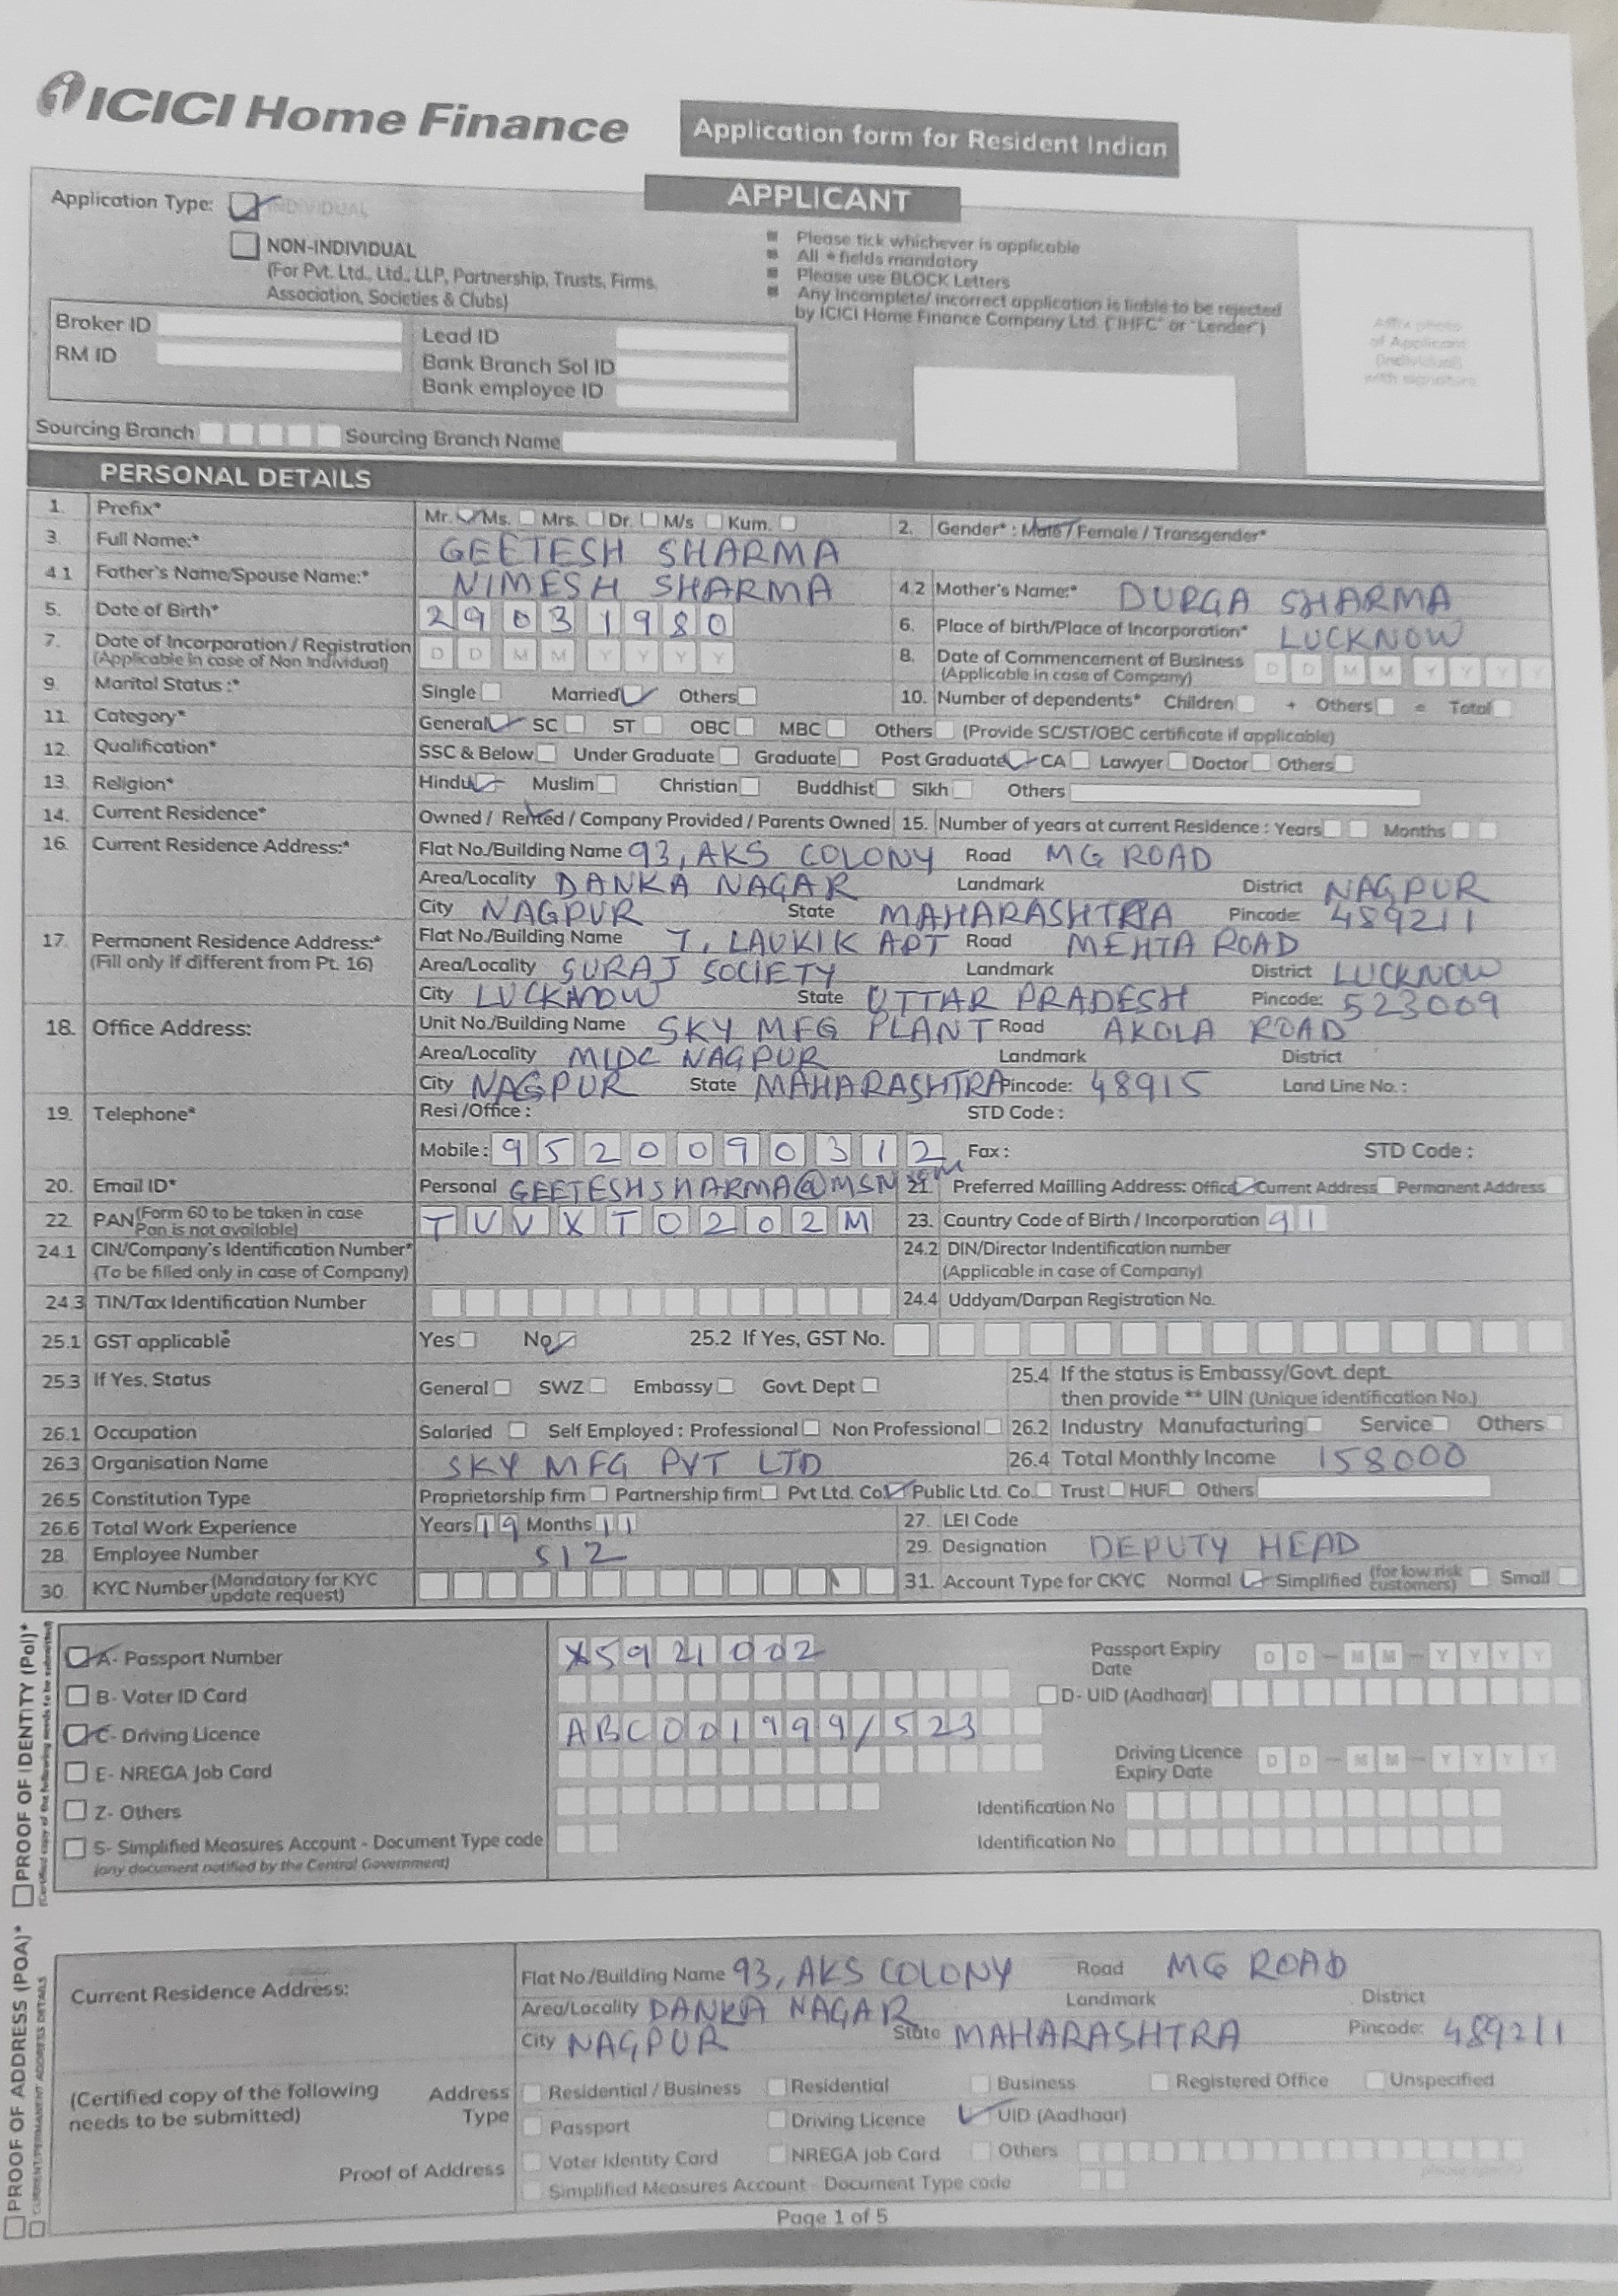 ICICI Home Finance
Application form for Resident Indian
APPLICANT
Application Type: INDIVIDUAL
NON-INDIVIDUAL
(For Pvt. Ltd., Ltd., LLP, Partnership, Trusts, Firms,
Association, Societies & Clubs)
Please tick whichever is applicable
All * fields mandatory
Please use BLOCK Letters
Any incomplete/ incorrect application is liable to be rejected
by ICICI Home Finance Company Ltd. ("IHFC" or "Lender")
Affix photo
of Applicant
(Individual)
with signature
Broker ID
RM ID
Lead ID
Bank Branch Sol ID
Bank employee ID
Sourcing Branch Sourcing Branch Name
PERSONAL DETAILS
1. Prefix* Mr. Ms. Mrs. Dr. M/s Kum. 2. Gender* : Male / Female / Transgender*
3. Full Name:* GEETESH SHARMA
4.1 Father's Name/Spouse Name:* NIMESH SHARMA 4.2 Mother's Name:* DURGA SHARMA
5. Date of Birth* 29031980 6. Place of birth/Place of Incorporation* LUCKNOW
7. Date of Incorporation / Registration D D M M Y Y Y Y 8. Date of Commencement of Business D D M M Y Y Y Y
(Applicable in case of Non Individual) (Applicable in case of Company)
9. Marital Status :* Single Married Others 10. Number of dependents* Children + Others = Total
11. Category* General SC ST OBC MBC Others (Provide SC/ST/OBC certificate if applicable)
12. Qualification* SSC & Below Under Graduate Graduate Post Graduate CA Lawyer Doctor Others
13. Religion* Hindu Muslim Christian Buddhist Sikh Others
14. Current Residence* Owned / Rented / Company Provided / Parents Owned 15. Number of years at current Residence : Years Months
16. Current Residence Address:* Flat No./Building Name 93, AKS COLONY Road MG ROAD
Area/Locality DANKA NAGAR Landmark District NAGPUR
City NAGPUR State MAHARASHTRA Pincode: 489211
17. Permanent Residence Address:* Flat No./Building Name 7, LAUKIK APT Road MEHTA ROAD
(Fill only if different from Pt. 16) Area/Locality SURAJ SOCIETY Landmark District LUCKNOW
City LUCKNOW State UTTAR PRADESH Pincode: 523009
18. Office Address: Unit No./Building Name SKY MFG PLANT Road AKOLA ROAD
Area/Locality MIDC NAGPUR Landmark District
City NAGPUR State MAHARASHTRA Pincode: 48915 Land Line No. :
19. Telephone* Resi /Office : STD Code :
Mobile : 9520090312 Fax : STD Code :
20. Email ID* Personal GEETESHSHARMA@MSN.com 21. Preferred Mailling Address: Office Current Address Permanent Address
22. PAN (Form 60 to be taken in case Pan is not available) TVVXT0202M 23. Country Code of Birth / Incorporation 91
24.1 CIN/Company's Identification Number* 24.2 DIN/Director Indentification number
(To be filled only in case of Company) (Applicable in case of Company)
24.3 TIN/Tax Identification Number 24.4 Uddyam/Darpan Registration No.
25.1 GST applicable* Yes No 25.2 If Yes, GST No.
25.3 If Yes, Status General SWZ Embassy Govt. Dept 25.4 If the status is Embassy/Govt. dept.
then provide ** UIN (Unique identification No.)
26.1 Occupation Salaried Self Employed : Professional Non Professional 26.2 Industry Manufacturing Service Others
26.3 Organisation Name SKY MFG PVT LTD 26.4 Total Monthly Income 158000
26.5 Constitution Type Proprietorship firm Partnership firm Pvt Ltd. Co. Public Ltd. Co. Trust HUF Others
26.6 Total Work Experience Years 19 Months 11 27. LEI Code
28. Employee Number 512 29. Designation DEPUTY HEAD
30. KYC Number (Mandatory for KYC update request) 31. Account Type for CKYC Normal Simplified (for low risk customers) Small
PROOF OF IDENTITY (PoI)*
(Certified copy of the following needs to be submitted)
A- Passport Number X5921002 Passport Expiry Date D D – M M – Y Y Y Y
B- Voter ID Card D- UID (Aadhaar)
C- Driving Licence ABC001999/523
E- NREGA Job Card Driving Licence Expiry Date D D – M M – Y Y Y Y
Z- Others Identification No
S- Simplified Measures Account - Document Type code Identification No
(any document notified by the Central Government)
PROOF OF ADDRESS (POA)*
CURRENT/PERMANENT ADDRESS DETAILS
Current Residence Address: Flat No./Building Name 93, AKS COLONY Road MG ROAD
Area/Locality DANKA NAGAR Landmark District
City NAGPUR State MAHARASHTRA Pincode: 489211
(Certified copy of the following needs to be submitted) Address Type Residential / Business Residential Business Registered Office Unspecified
Passport Driving Licence UID (Aadhaar)
Proof of Address Voter Identity Card NREGA Job Card Others
please specify
Simplified Measures Account - Document Type code
Page 1 of 5